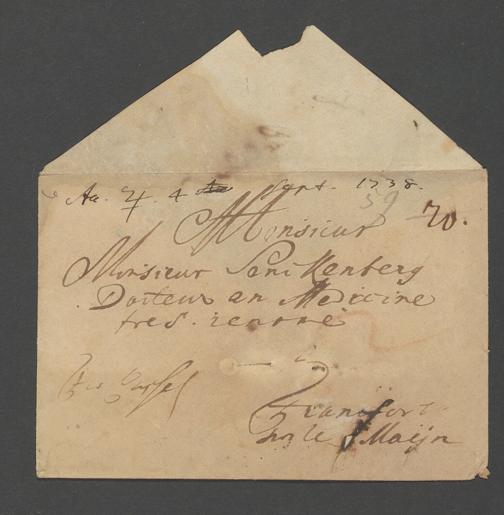 Aa. 4. 4 Sept. 1738.
59
70.
Monsieur
Monsieur Senckenberg
Docteur en Medicine
tres. renomé
à
Francfort
sur le Maijn